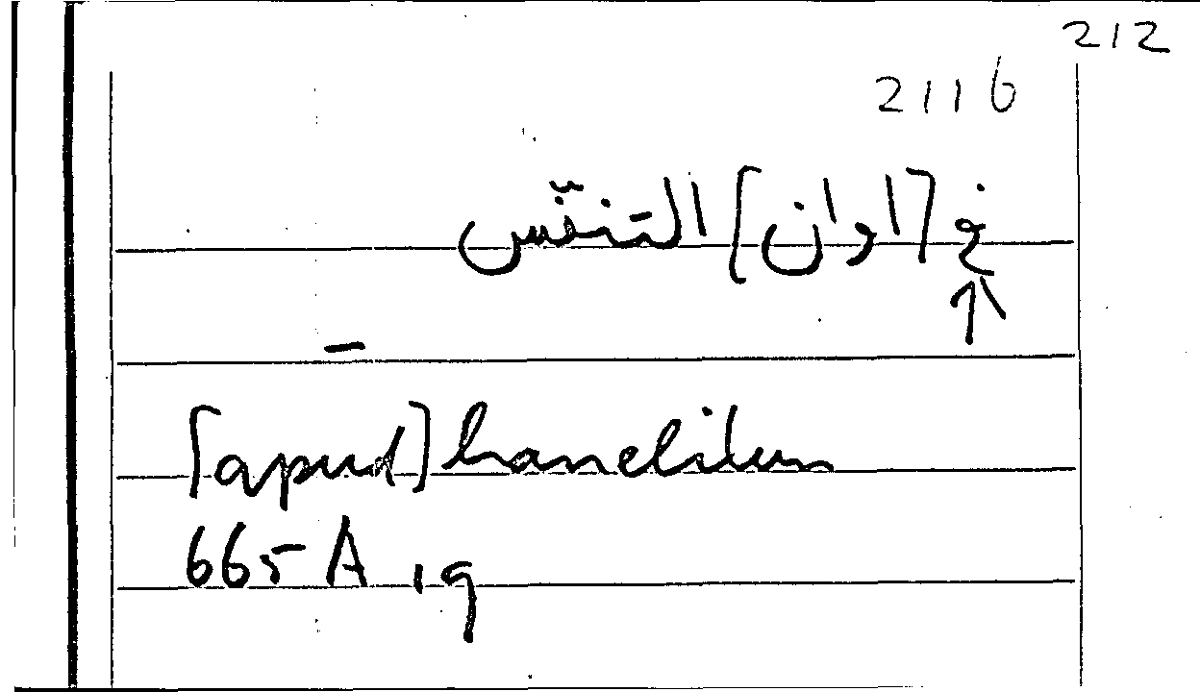 212
2116
في [اوان] التنفّس
[apud] hanelitum
665 A 19